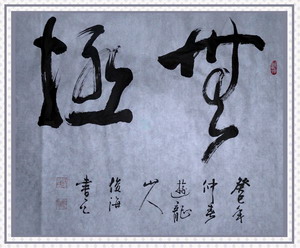 無極
癸巳年
仲春
遊龍
山人
俊海
書之